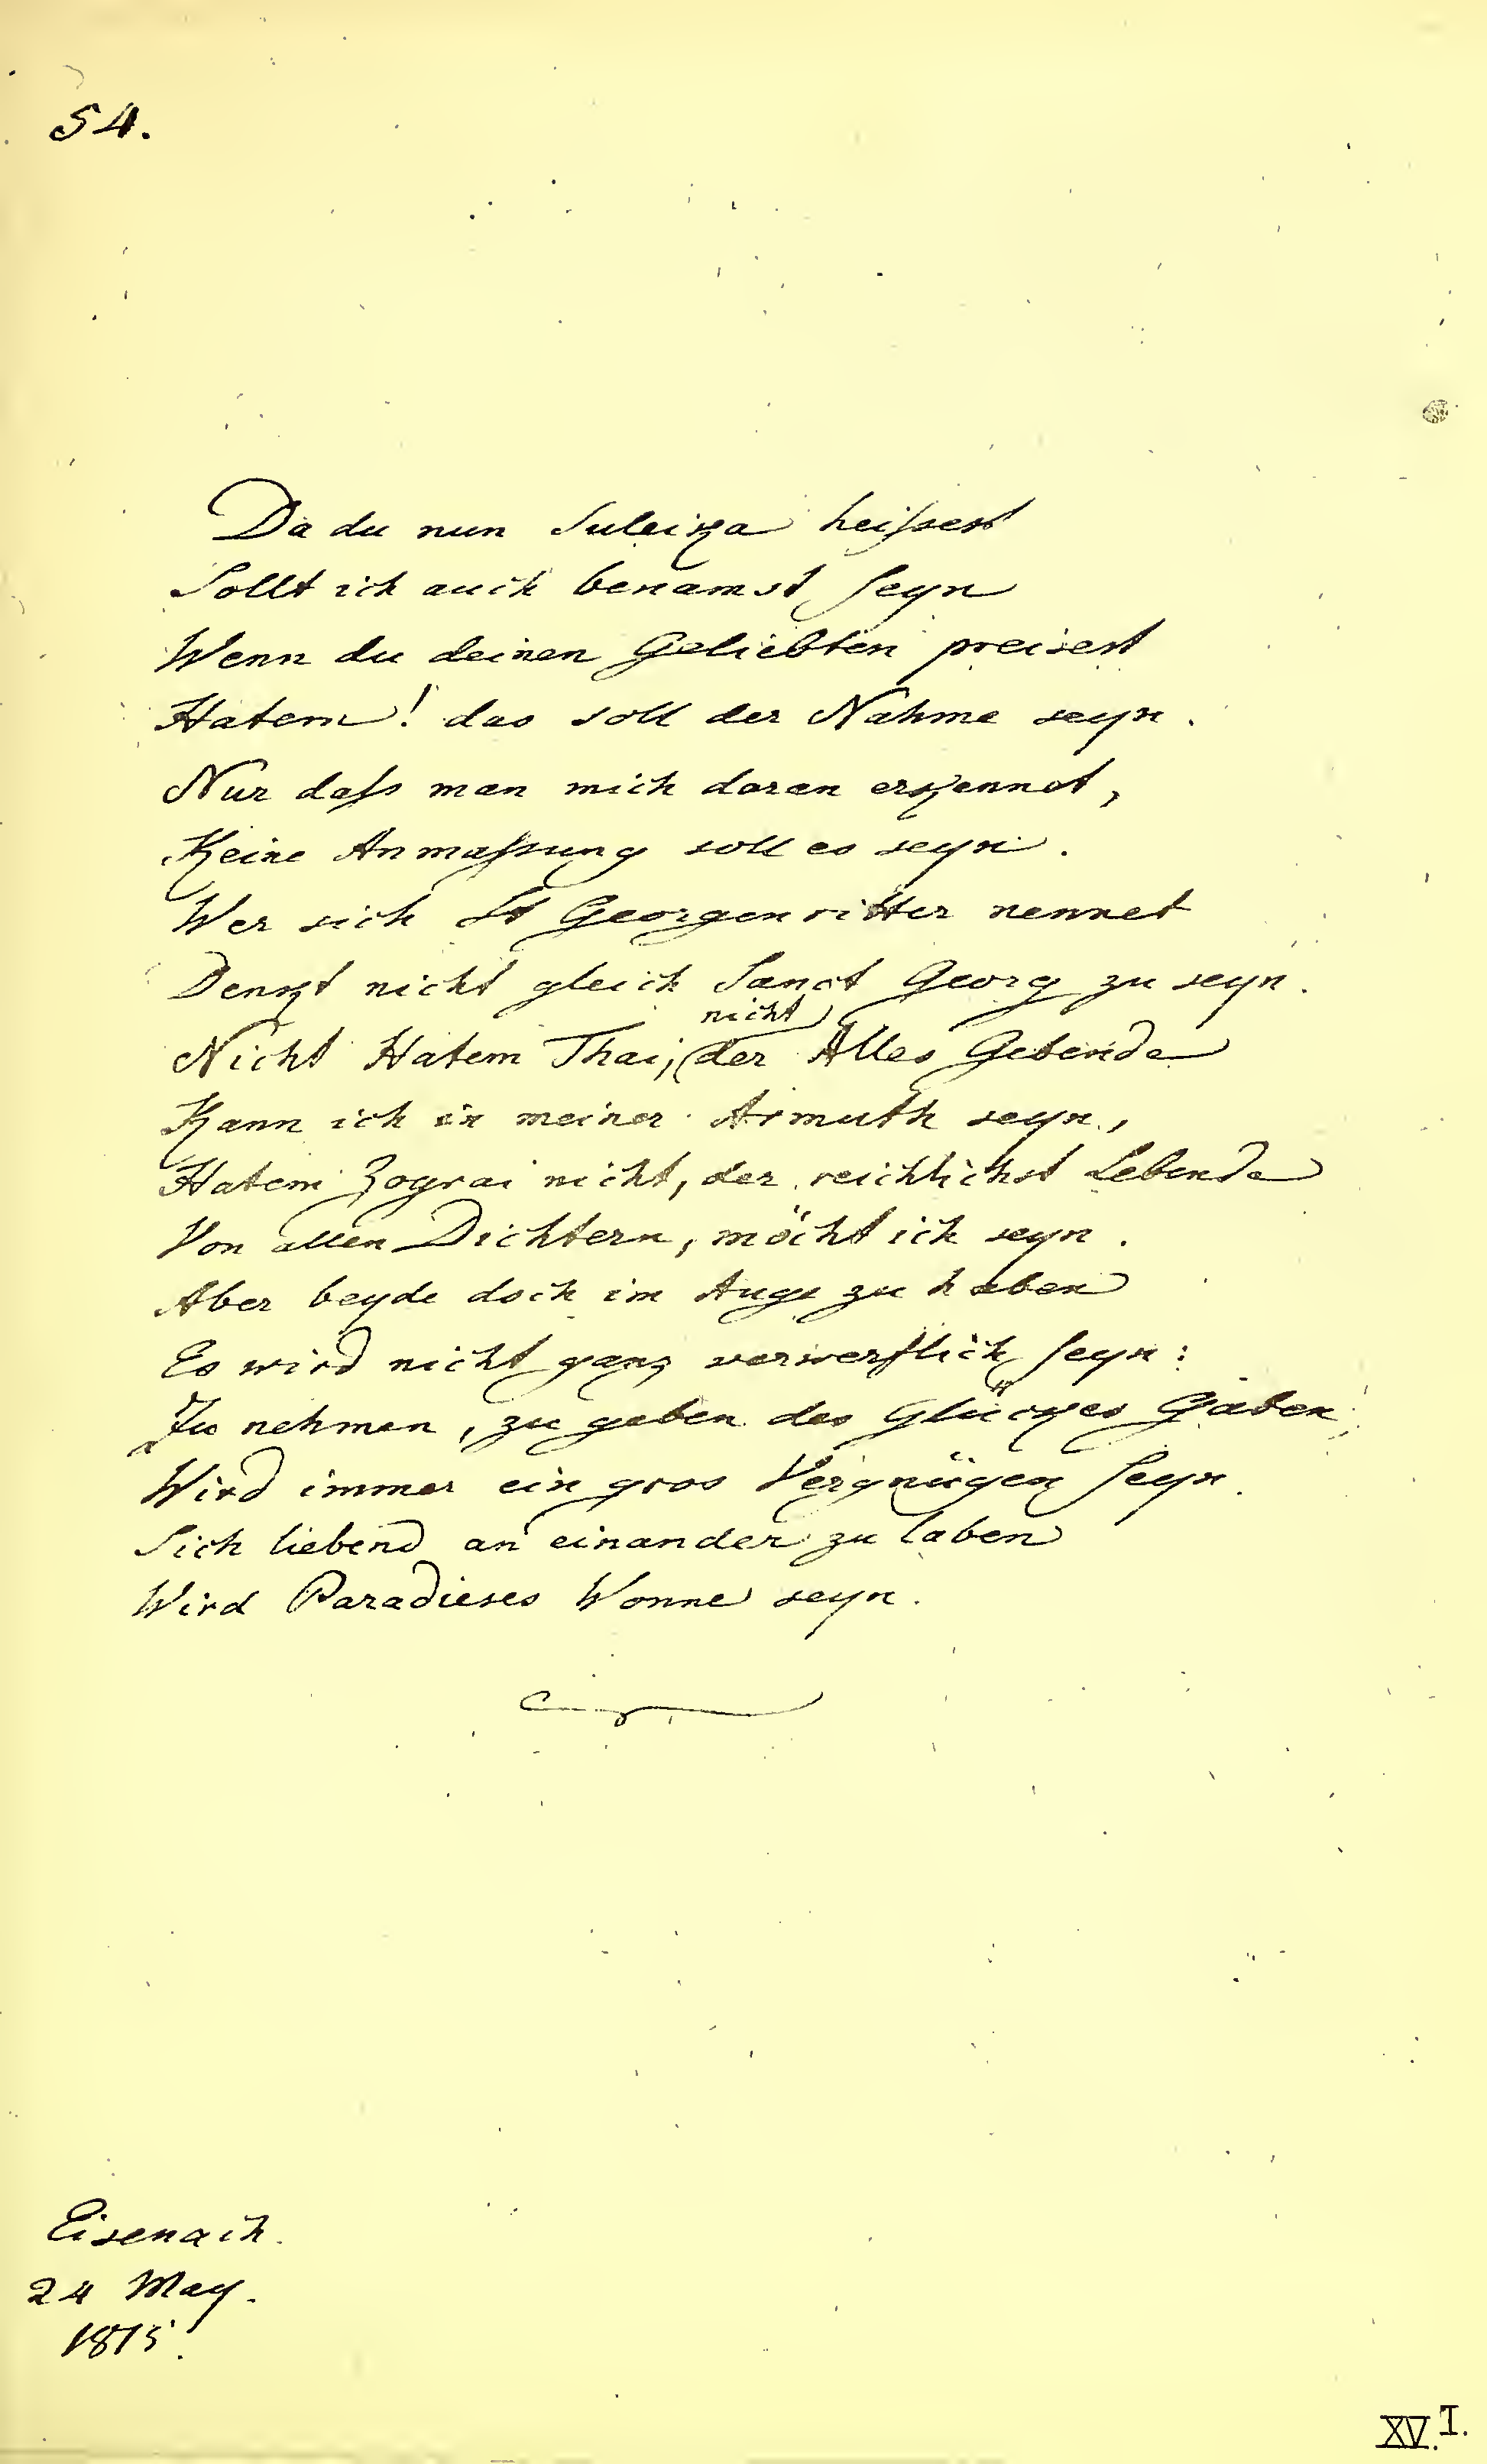 54.
Da du nun Suleika heissest
Sollt ich auch benamst seyn
Wenn du deinen Geliebten preisest
Hatem! das soll der Nahme seyn.
Nur dass man mich daran erkennet,
Keine Anmassung soll es seyn.
Wer sich St Georgenritter nennet
Denkt nicht gleich Sanct Georg zu seyn.
nicht
Nicht Hatem Thai, der Alles Gebende
Kann ich in meiner Armuth seyn,
Hatem Zograi nicht, der reichlichst Lebende
Von allen Dichtern, möcht ich seyn.
Aber beyde doch im Auge zu haben
Es wird nicht ganz verwerflich seyn:
Zu nehmen, zu geben des Glückes Gaben
Wird immer ein gros Vergnügen seyn.
Sich liebend an einander zu laben
Wird Paradieses Wonne seyn.
Eisenach.
24 May.
1815.
XV.I.